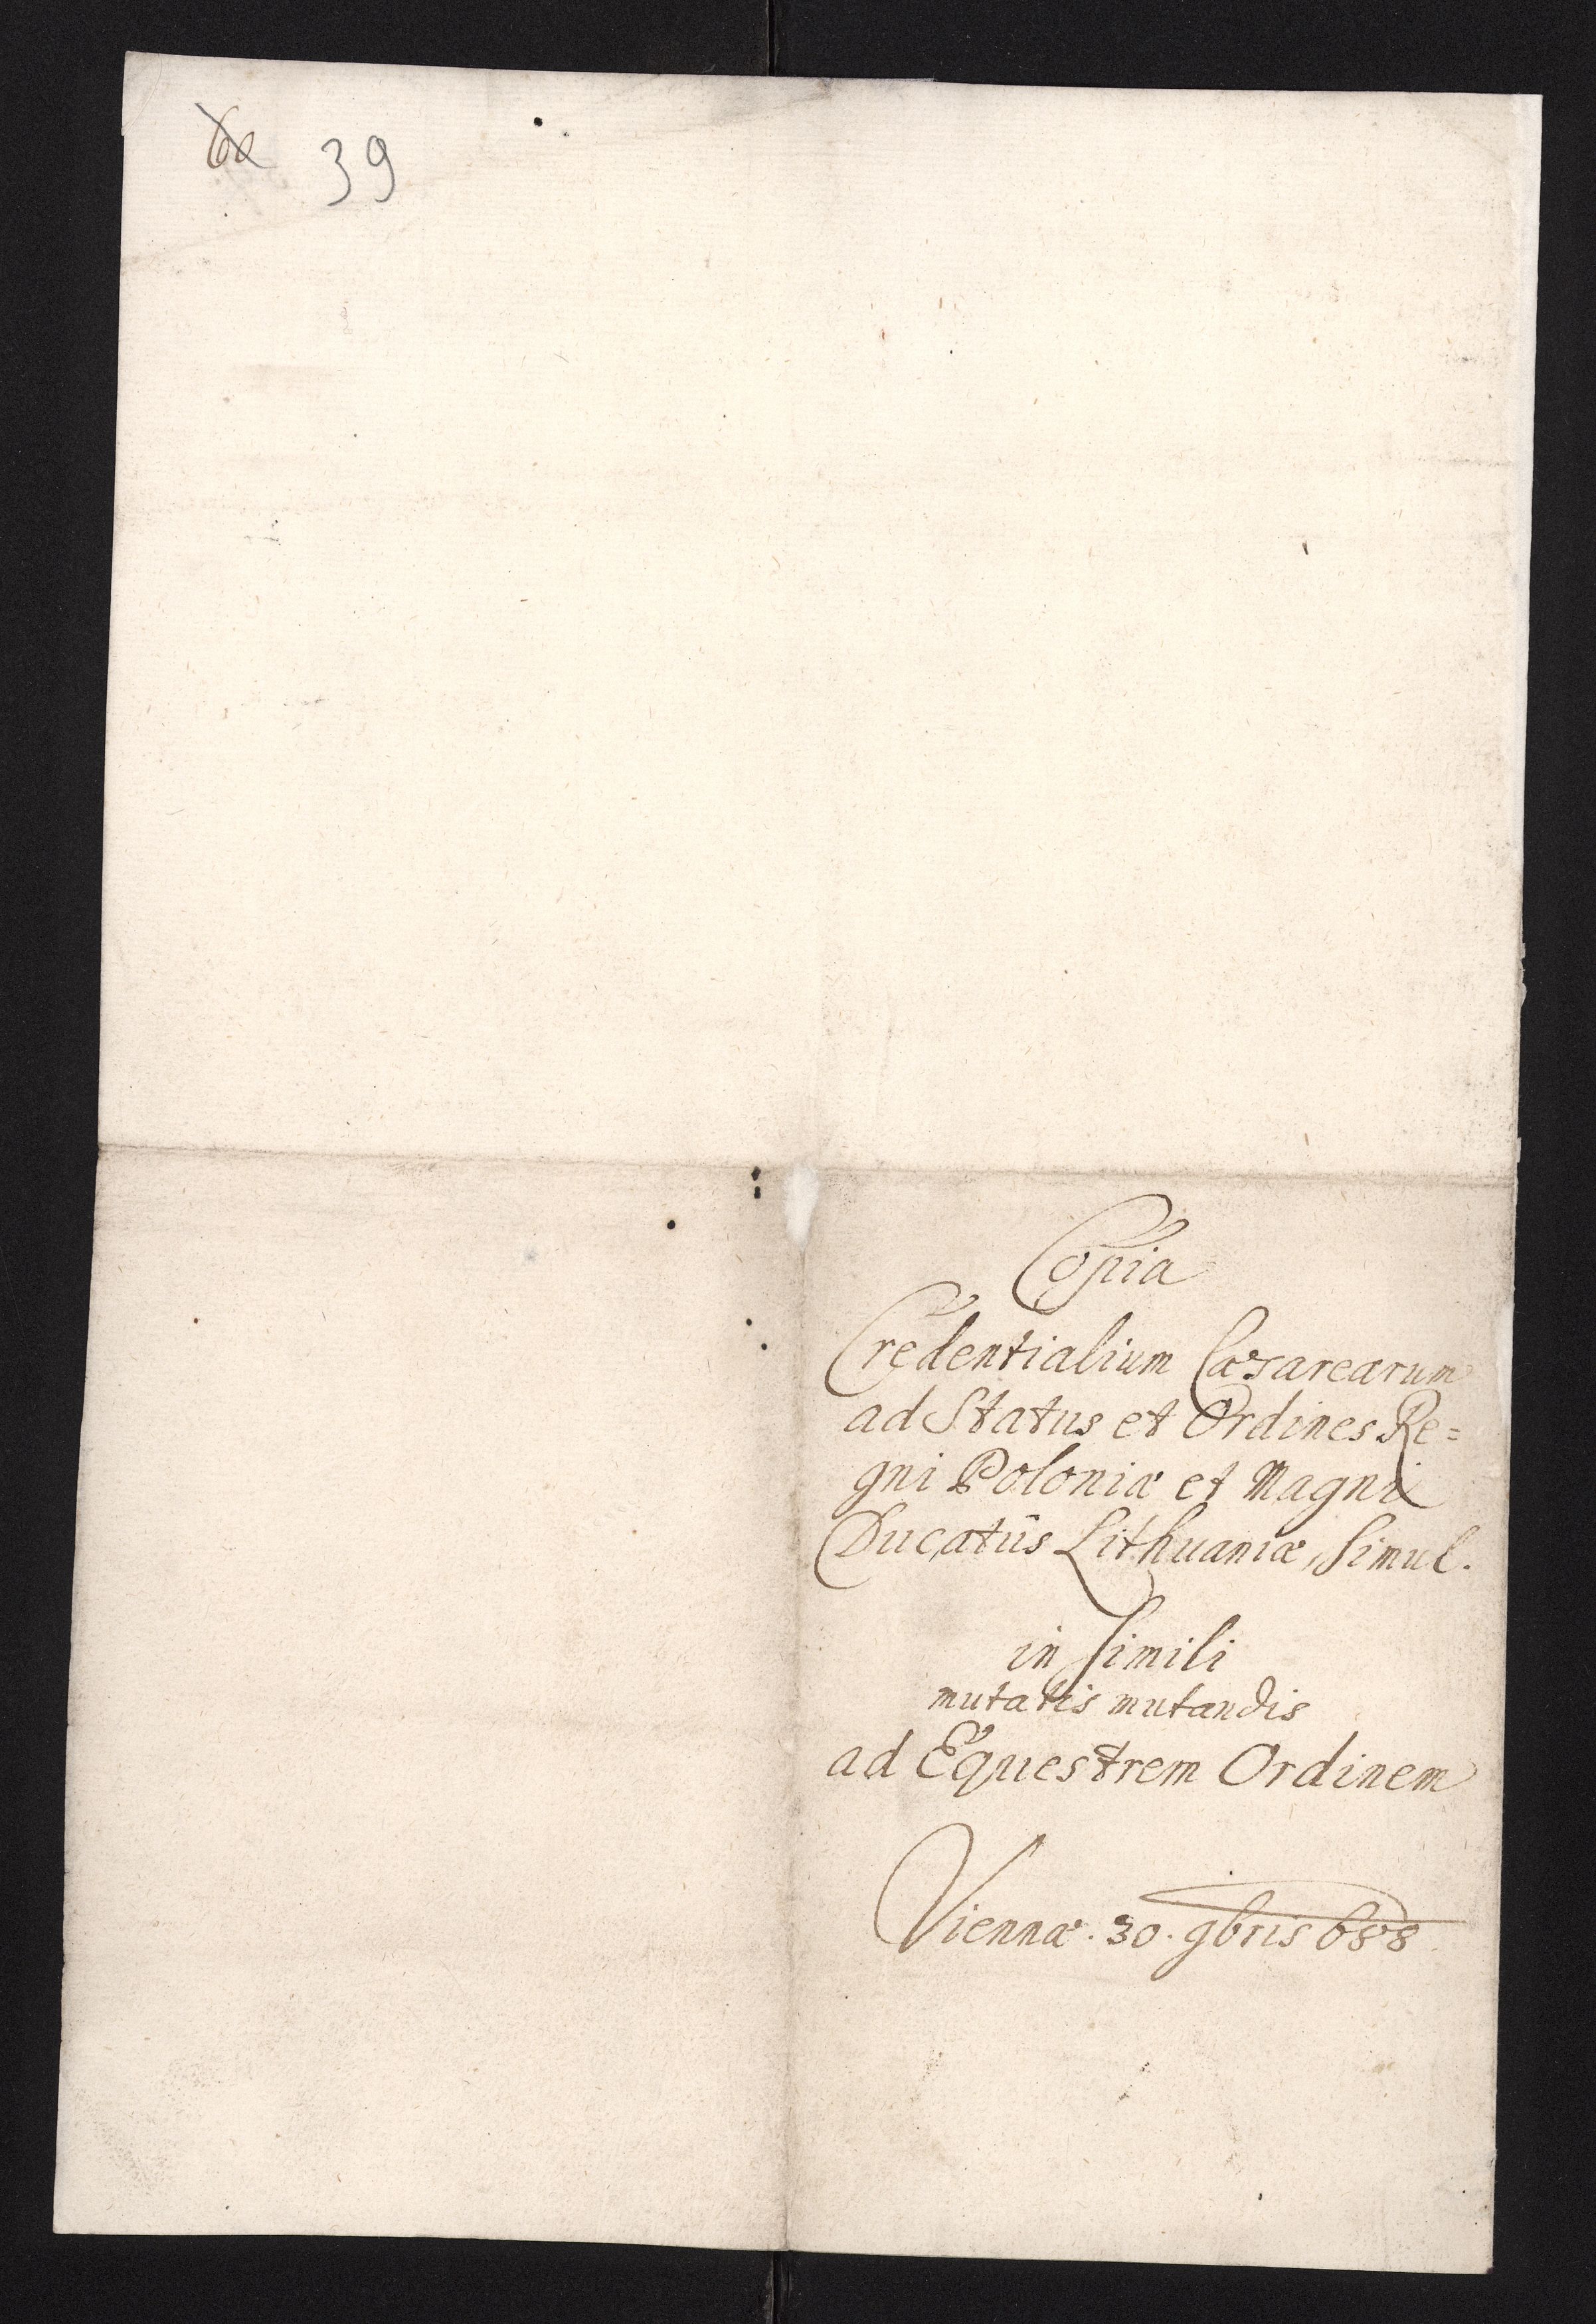 39
Copia
Credentialium Cæsarearum
ad Status et Ordines Re=
gni Poloniæ et Magni
Ducatûs Lithuaniæ, simul.
in simili
mutatis mutandis
ad Equestrem Ordinem
Viennæ. 30. 9bris 688